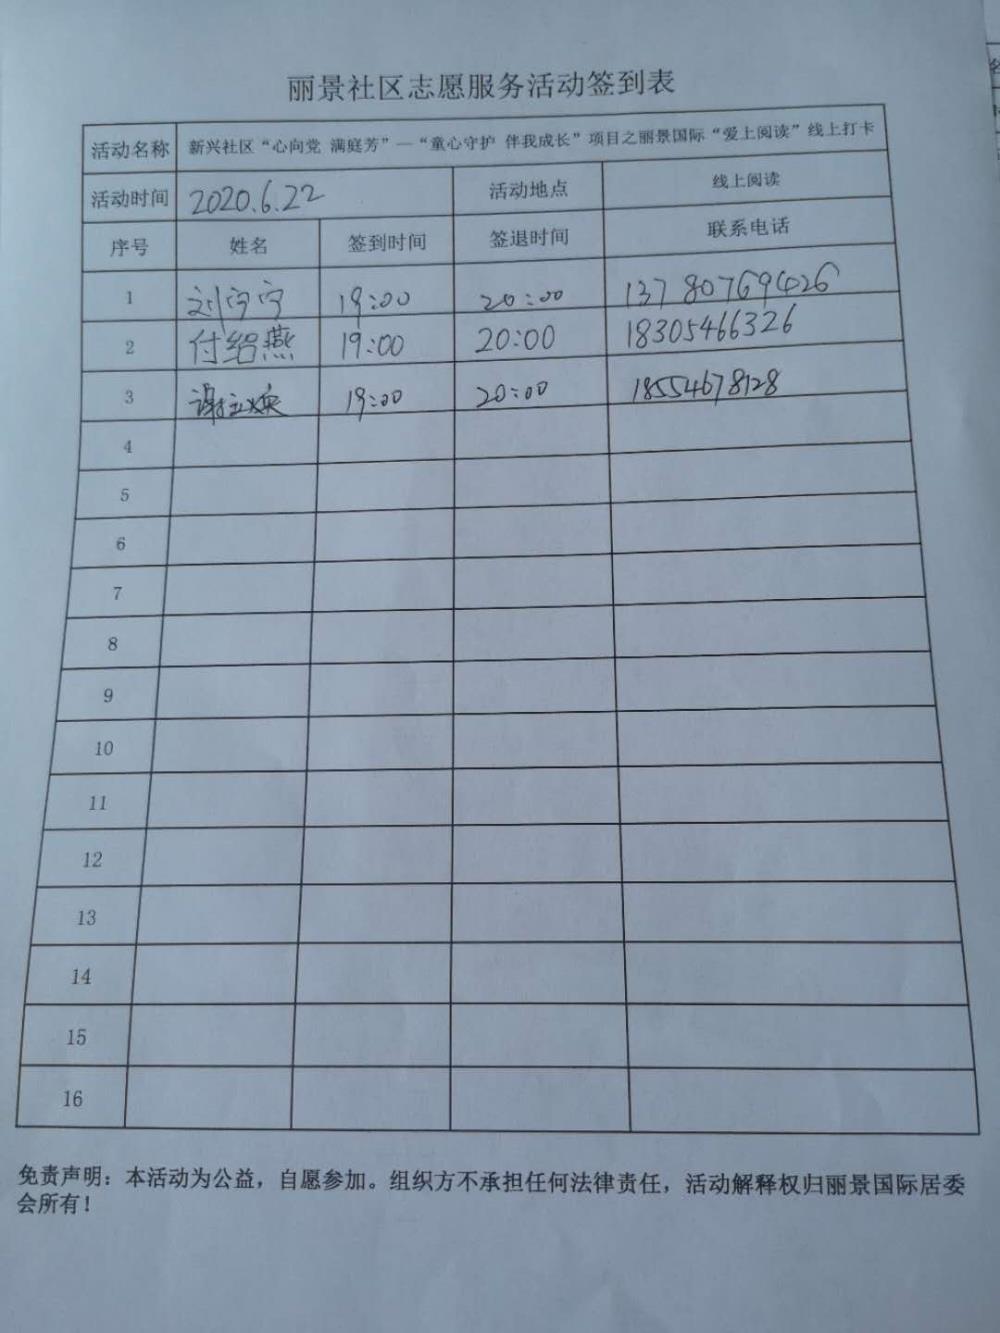 丽景社区志愿服务活动签到表
活动名称 新兴社区“心向党 满庭芳”—“童心守护 伴我成长”项目之丽景国际“爱上阅读”线上打卡
活动时间 2020.6.22 活动地点 线上阅读
序号 姓名 签到时间 签退时间 联系电话
1 刘宁宁 19:00 20:00 13780769426
2 付绍燕 19:00 20:00 18305466326
3 谢 焕 19:00 20:00 18554678128
4
5
6
7
8
9
10
11
12
13
14
15
16
免责声明：本活动为公益，自愿参加。组织方不承担任何法律责任，活动解释权归丽景国际居委
会所有！